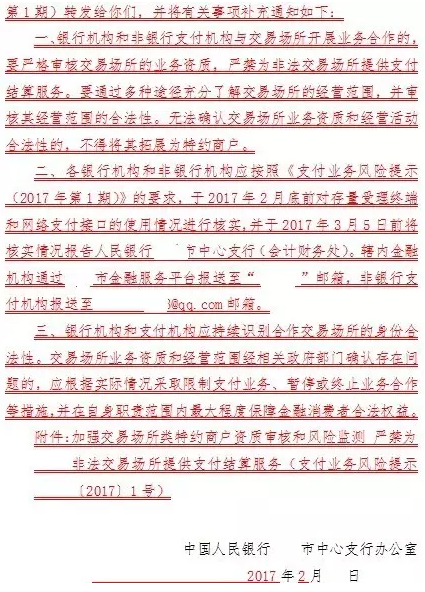 第1期）转发给你们，并将有关事项补充通知如下：
一、银行机构和非银行支付机构与交易场所开展业务合作的，
要严格审核交易场所的业务资质，严禁为非法交易场所提供支付
结算服务。要通过多种途径充分了解交易场所的经营范围，并审
核其经营范围的合法性。无法确认交易场所业务资质和经营活动
合法性的，不得将其拓展为特约商户。
二、各银行机构和非银行机构应按照《支付业务风险提示
（2017年第1期）》的要求，于2017年2月底前对存量受理终端
和网络支付接口的使用情况进行核实，并于2017年3月5日前将
核实情况报告人民银行 市中心支行（会计财务处）。辖内金融
机构通过 市金融服务平台报送至“ ”邮箱，非银行支
付机构报送至 @qq.com邮箱。
三、银行机构和支付机构应持续识别合作交易场所的身份合
法性。交易场所业务资质和经营范围经相关政府部门确认存在问
题的，应根据实际情况采取限制支付业务、暂停或终止业务合作
等措施，并在自身职责范围内最大程度保障金融消费者合法权益。
附件：加强交易场所类特约商户资质审核和风险监测 严禁为
非法交易场所提供支付结算服务（支付业务风险提示
〔2017〕1号）
中国人民银行 市中心支行办公室
2017年2月 日